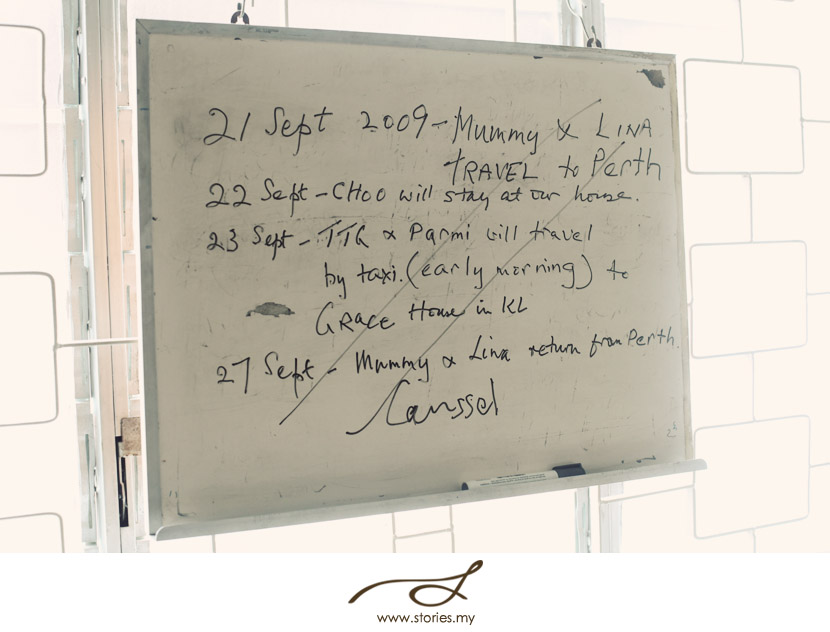 21 Sept 2009 - Mummy & LINA
TRAVEL to Perth
22 Sept - CHOO will stay at our house.
23 Sept - TTG & Parmi will travel
by taxi. (early morning) to
GRACE House in KL
27 Sept - Mummy & Lina return from Perth.
Canssel
www.stories.my